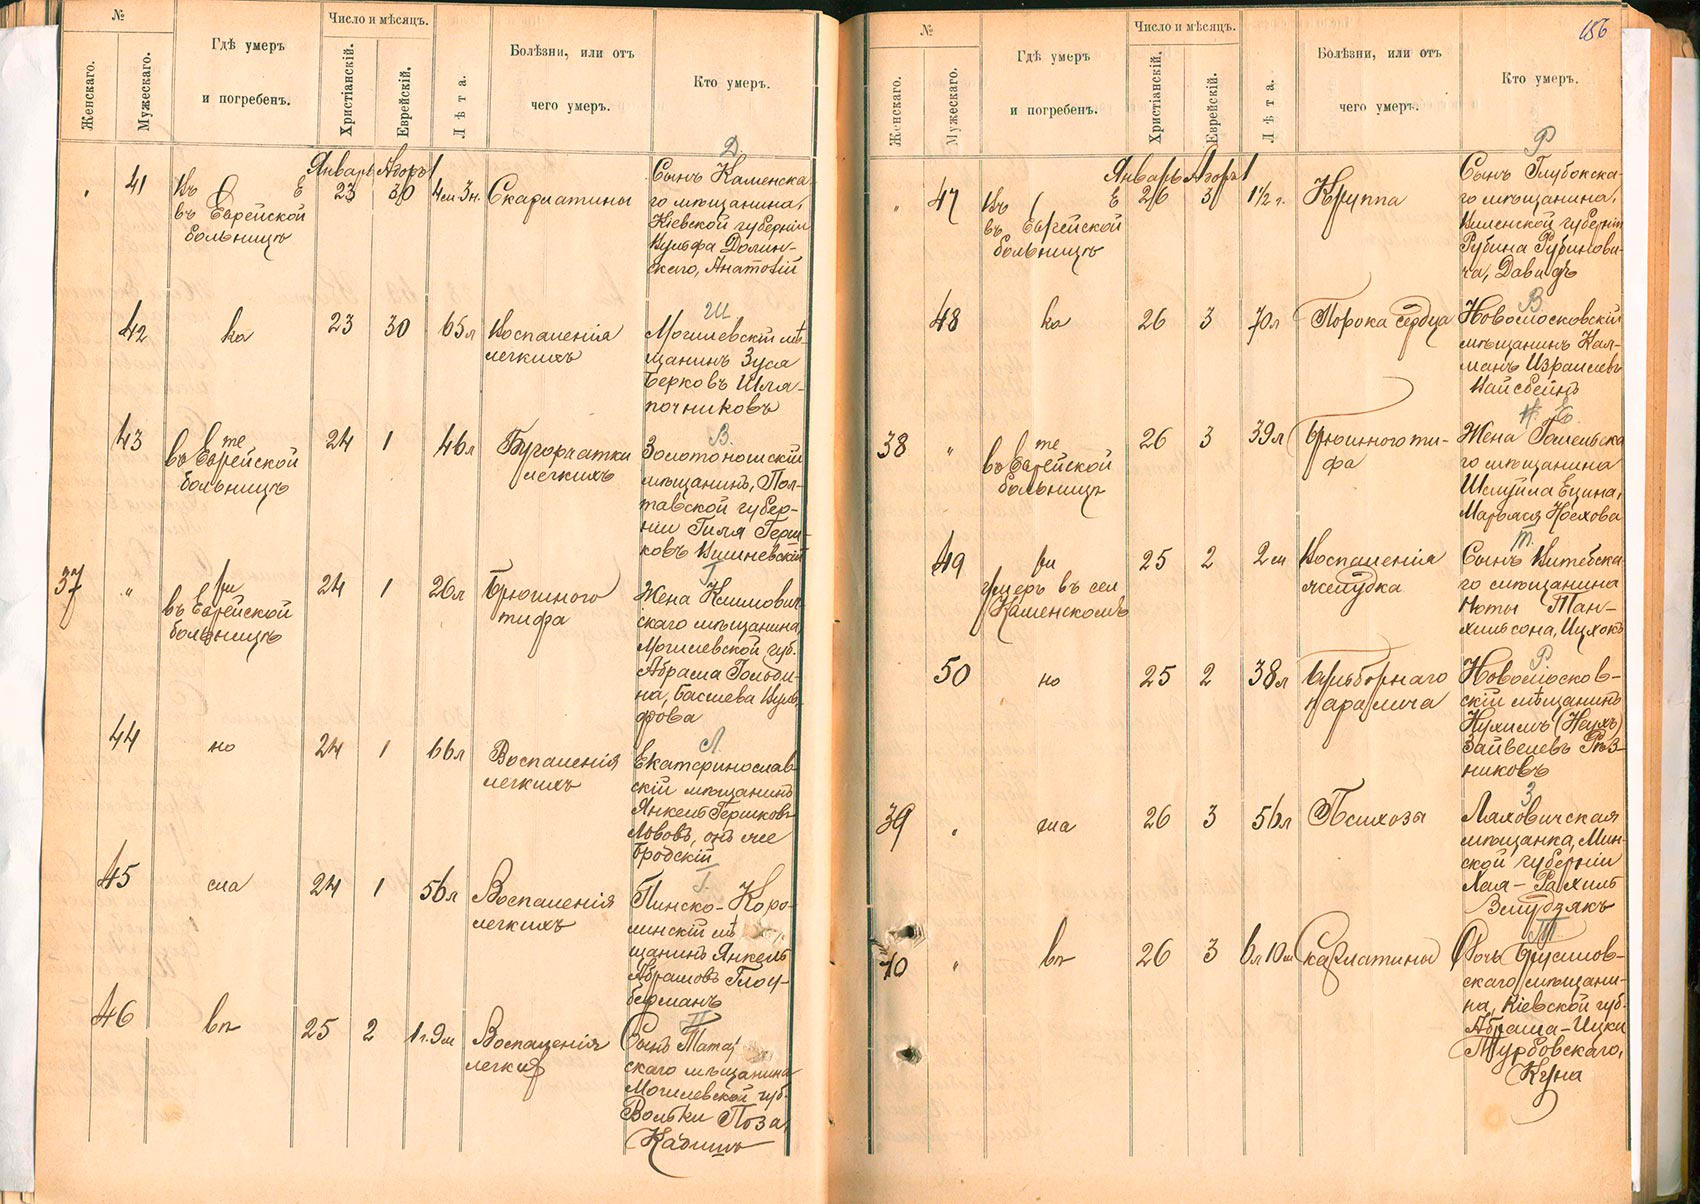 №
Число и мѣсяцъ.
Женскаго.
Мужескаго.
Гдѣ умеръ
и погребенъ.
Христіанскій.
Еврейскій.
Лѣта.
Болѣзни, или отъ
чего умеръ.
Кто умеръ.
Д.
Январь
41
въ Еврейской
больницѣ
23
30
4м. 3н.
Скарлатины
Сынъ Каменска-
го мѣщанина,
Кіевской губерніи
Вульфа Долин-
скаго, Анатолій
Ш
42
23
30
65л
Воспаленія
легкихъ
Могилевскій мѣ-
щанинъ Зуса
Берковъ Шля-
почниковъ
В.
43
въ Еврейской
больницѣ
24
1
46л
Бугорчатки
легкихъ
Золотоношскій
мѣщанинъ, Пол-
тавской губер-
ніи Гиля Герш-
ковъ Вишневскій
Г
37
"
въ Еврейской
больницѣ
24
1
26л
Брюшного
тифа
Жена Климович-
скаго мѣщанина,
Могилевской губ.
Абрама Гольди-
на, Басшева Вуль-
фова
Л
44
но
24
1
66л
Воспаленія
легкихъ
Екатеринослав-
скій мѣщанинъ
Янкель Гершковъ
Львовъ, онъ же
Бродскій
Г.
45
24
1
56л
Воспаленія
легкихъ
Пинско-Каро-
линскій мѣ-
щанинъ Янкель
Абрамовъ
берманъ
П
46
25
2
1г. 9м
Воспаленія
легких
Сынъ
скаго мѣщанина
Могилевской губ.
Вольки Поза,
Кадишъ
№
Число и мѣсяцъ.
156
Женскаго.
Мужескаго.
Гдѣ умеръ
и погребенъ.
Христіанскій.
Еврейскій.
Лѣта.
Болѣзни, или отъ
чего умеръ.
Кто умеръ.
Р
Январь
"
47
въ Еврейской
больницѣ
26
3
1½ г.
Круппа
Сынъ Глубокска-
го мѣщанина,
Виленской губерніи
Рубина Рубинови-
ча, Давидъ
В
48
26
3
70л
Порока сердца
Новомосковскій
мѣщанинъ Кал-
манъ Израилевъ
Вайсбейнъ
Е
38
"
въ Еврейской
больницѣ
26
3
39л
Брюшного ти-
фа
Жена Гомельска-
го мѣщанина
Шмуйла Ецина,
Марьяся Носхова
Т.
49
умеръ въ сел
Каменскомъ
25
2
2м
Воспаленія
желудка
Сынъ Витебска-
го мѣщанина
Ноты Тан-
хильсона, Ицхокъ
Р.
50
но
25
2
38л
Бульборнаго
паралича
Новомосков-
скій мѣщанинъ
Нухимъ (Неухъ)
Зайвелевъ Рѣз-
никовъ
З
39
"
26
3
56л
Психоза
Ляховичская
мѣщанка, Мин-
ской губерніи
Хая-Рахиль
Змудзякъ
Т.
40
"
26
3
6л 10м
Скарлатины
Дочь Брусилов-
скаго мѣщани-
на, Кіевской губ.
Абрама-Ицки
Турбовскаго,
Куна